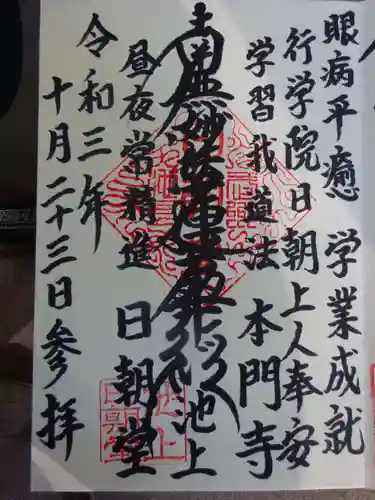 眼病平癒 学業成就
行学院日朝上人奉安
学習我道法 本門寺
南無妙法蓮華経
池上
昼夜常精進 日朝堂
令和三年
十月二十三日参拝